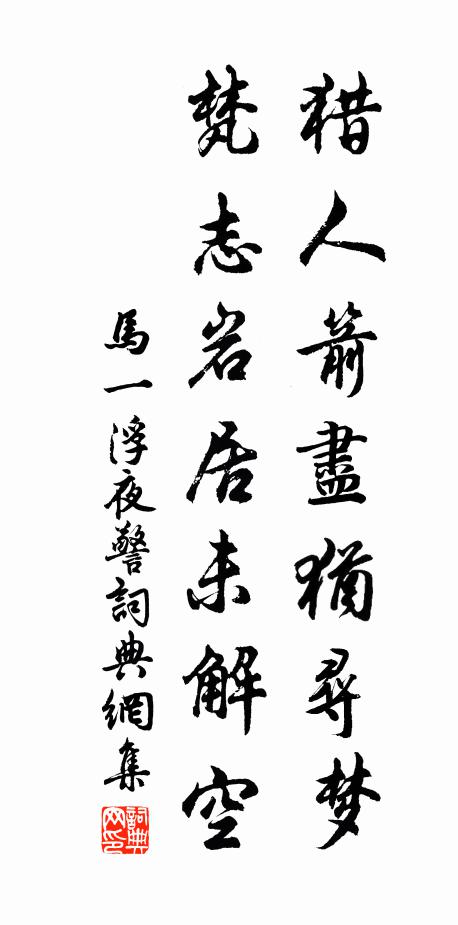 猎人箭盡猶尋梦
梵志岩居未解空
馬一浮夜警詞典網集
詞典网印